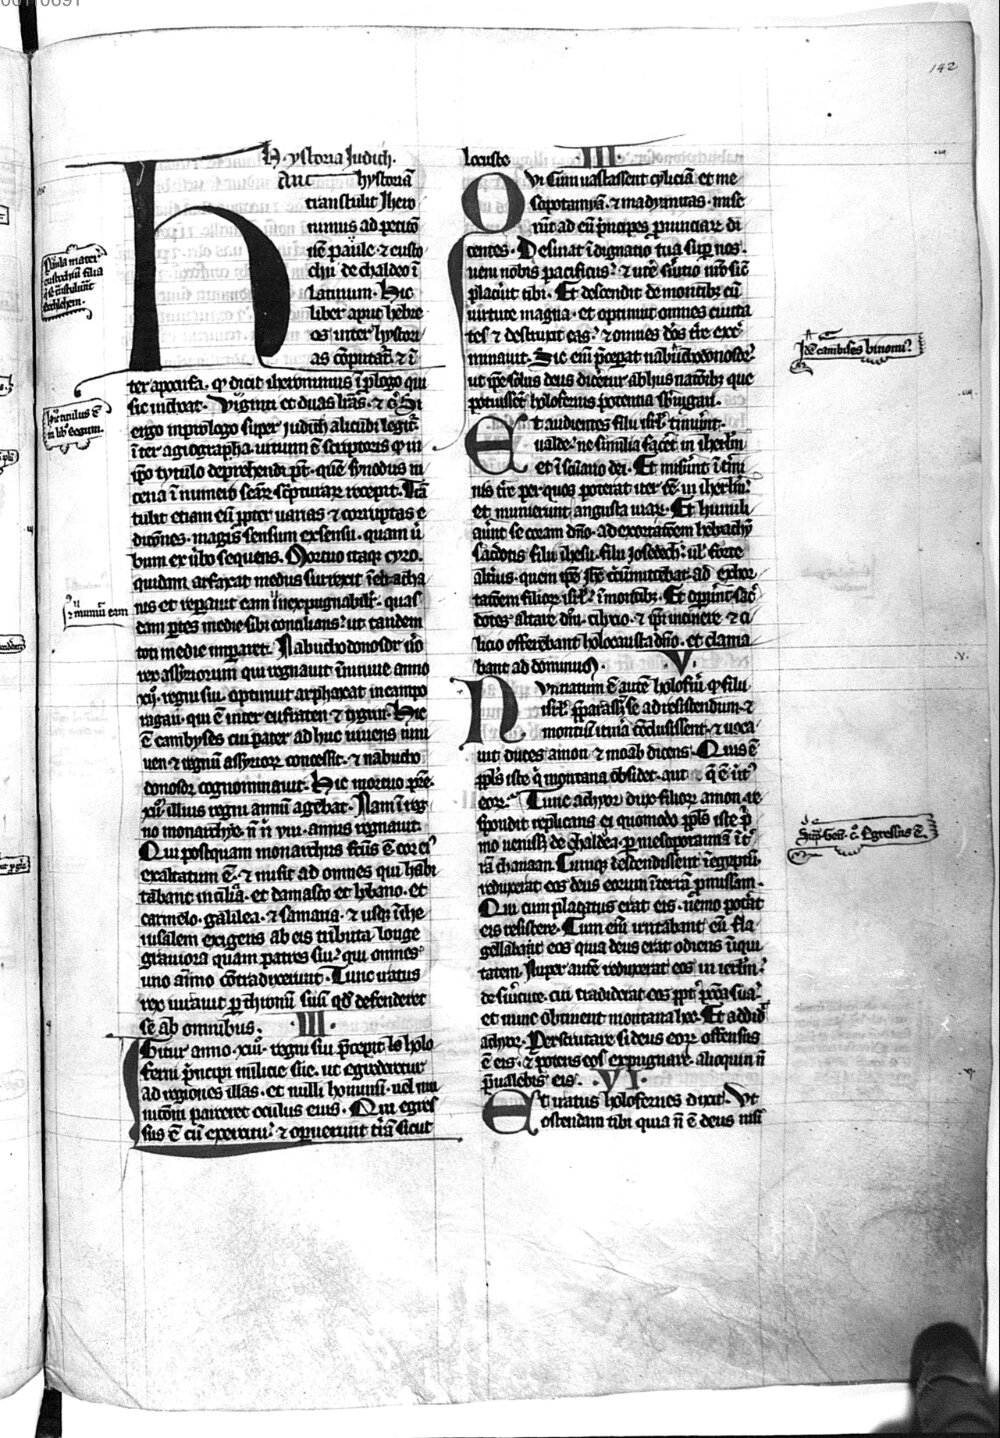 142
H. ystoria Judich.
Anc hystoriā
transtulit Ihero
nimus ad petitō
nē paule ⁊ eusto
chii de chaldeo ī
latinum. Hic
liber aput hebre
os inter hystori
as cōputat᷑ ⁊ ī
ter apocrifa. qd dicit iheronimus ī plogo qui
sic inchoat. Viginti et duas lr̄as. ⁊ cꝰ. Si
ergo in prologo super judich alicubi legit᷑
īter agiographa. uitium ē scriptoris qd in
ipo tytulo deprehendi pt. quē synodus ni
cena ī numero scāꝝ scripturaꝝ recepit. Trās
tulit etiam eū ppter uarias ⁊ corruptas e
diciones. magis sensum ex sensu. quam ū
bum ex ūbo sequens. Mortuo itaqꝫ cyro.
quidam arfaxat medus surrexit ī ebatha
nis et reparauit eam ī inexpugnabilē. quas
dam ptes medie sibi concilians ut tandem
toti medie impaaret. Nabuchodonosor ūo
rex assyriorum qui regnauit ī niniue anno
xij. regni sui. optinuit arphaxat in campo
ragau. qui ē inter eufraten ⁊ tygrin. Hic
ē cambyses cui pater ad huc uiuens nini
uen ⁊ regnū assyrioꝝ concessit. ⁊ nabucho
donosor cognominauit. Hic mortuo pr̄e.
xij. illius regni annū agebat. Nam ī reg
no monarchye n̄ n̄ viii. annis regnauit.
Qui postquam monarchus fcūs ē cor eiꝰ
exaltatum ē. ⁊ misit ad omnes qui habi
tabant in cilicia. et damasco et lybano. et
carmelo. galilea. ⁊ samaria. ⁊ usqꝫ ī ihe
rusalem exigens ab eis tributa longe
grauiora quam patres sui. qui omnes
uno aīmo cōtradixerunt. Tunc iratus
rex iurauit p thronū suū qd defenderet
se ab omnibus. .III.
Igitur anno xiii. regni sui pcepit. holo
ferni pncipi milicie sue. ut egrederetur
ad regiones illas. et nulli homini uel mu
nitōni parceret oculus eius. Qui egres
sus ē cū exercitu. ⁊ opuerunt trā sicut
locuste .IIII.
Qui cum uastassent cyliciā et me
sopotamyā. ⁊ madyanitas. mise
rūt ad eū pncipes puinciaꝝ di
centes. Desinat īdignatio tua sup nos.
ueni nobis pacificus ⁊ utē suicio nrō sic
placuit tibi. Et descendit de montibꝫ cū
uirtute magna. et optinuit omnes ciuita
tes ⁊ destruxit eas ⁊ omnes dōs tre exter
minauit. Sic eni pceperat nabuchodonosor
ut ipe solus deus diceretur ab hiis nationibꝫ que
potuissent holofernis potentia subiugari.
Et audientes filii isrl. timuerūt
ualde. ne similia faceret in iherlm
et ī sctuario dei. Et miserunt ī tmi
nis tre per quos poterat iter ee in iherlm.
et munierunt angusta uiaꝝ. Et humili
auerūt se coram dno. ad exortationem heliachym
sacerdotis filii ihesu. filii josedech. uel forte
alterius. quem ipe Jhc circumuittebat ad exhor
tationem filioꝝ isrl. ī montibꝫ. Et operuerūt sacer
dotes altare dni cilicio. ⁊ ipi in cinere ⁊ ci
licio offerebant holocausta dno. et clama
bant ad dominum. .V.
Nunciatum ē autē holofni qd filii
isrl. pparassēt se ad resistendum ⁊
montiū itinera cōclusissent. ⁊ uoca
uit duces amon ⁊ moab dicens. Quis ē
ppls iste q montana obsidet. aut ⁊ q ē uirtus
eoꝝ. Tunc achyor dux filioꝝ amon re
spondit replicans ei quomodo ppls iste p
mo uenisset de chaldea. p mesopotamiā ī t
rā chanaan. Cumqꝫ descendissent ī egyptū
reduxerat eos deus eorum ī terrā pmissam.
Qui cum placatus erat eis. nemo poterat
eis resistere. Cum eni irritabant eū fla
gellabant eos quia deus erat odiens iniqui
tatem. Nuper autē reduxerat eos in ierlm
de seruitute. cui tradiderat eos ppt pcca sua.
et nunc obtinent montana hec. Et addidit
achyor. Perscrutare si deus eoꝝ offensus
ē eis. ⁊ poteris eos expugnare. alioquin n̄
pualebis eis. .VI.
Et iratus holofernes dixit. Ut
ostendam tibi quia n̄ ē deus nisi
Paula mater
eustochiū filia
Hic titulus ē
in libro
inuniū eam
Idē cambises binomiꝰ
Sup Gen. cº. Egressus ē.